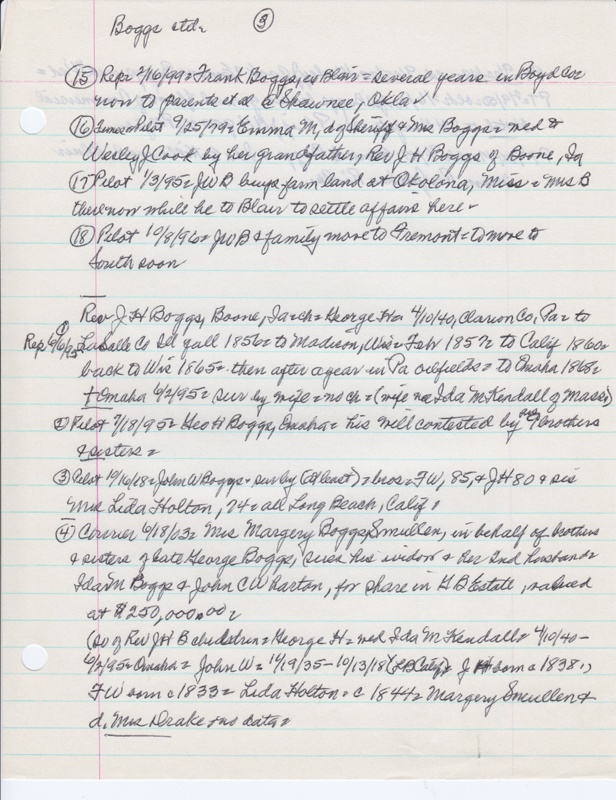 Boggs ctd= (3)
(15) Repr 2/16/99= Frank Boggs, in Blair= several years in Boyd Co=
now to parents et al @ Shawnee, Okla
(16) Pilot 9/25/79= Emma M, d of Sheriff & Mrs Boggs= wed to
Wesley J Cook by her grandfather, Rev J H Boggs of Boone, Ia
(17) Pilot 1/3/95= JWB buys farm land at Okolona, Miss= Mrs B
there now while he to Blair to settle affairs here
(18) Pilot 10/8/96= JWB & family move to Fremont= to move to
South soon
Rev J H Boggs, Boone, Ia=ch= George H= 4/10/40, Clarion Co, Pa= to
(1) Rep 6/6/95 LaSalle Co Ill fall 1856= to Madison, Wis= Febr 1857= to Calif 1860=
back to Wis 1865= then after a year in Pa oilfields= to Omaha
† Omaha 6/2/95= sur by wife= no ch= (wife nee Ida M Kendall of Mass)
(2) Pilot 7/18/95= Geo H Boggs, Omaha= his will contested by brothers
& sisters=
(3) Pilot John W Boggs= sur by (at least)= bros= FW, 85, & J H 80 & sis
Mrs Lida Holton, 74= all Long Beach, Calif
(4) Courier 6/18/03= Mrs Margery Boggs Smullen, in behalf of brothers
& sisters of late George Boggs, sues his widow & her 2nd husband=
Ida M Boggs & John C Wharton, for share in GB Estate, valued
at $250,000.00=
(so of Rev JHB children= George H= wed Ida M Kendall= 4/10/40-
6/2/95= Omaha= John W= 10/19/35-10/13/18 (LB Calif)= J H born c 1838=,
FW born c 1833= Lida Holton= c 1844= Margery Smullen &
d, Mrs Drake= no data=